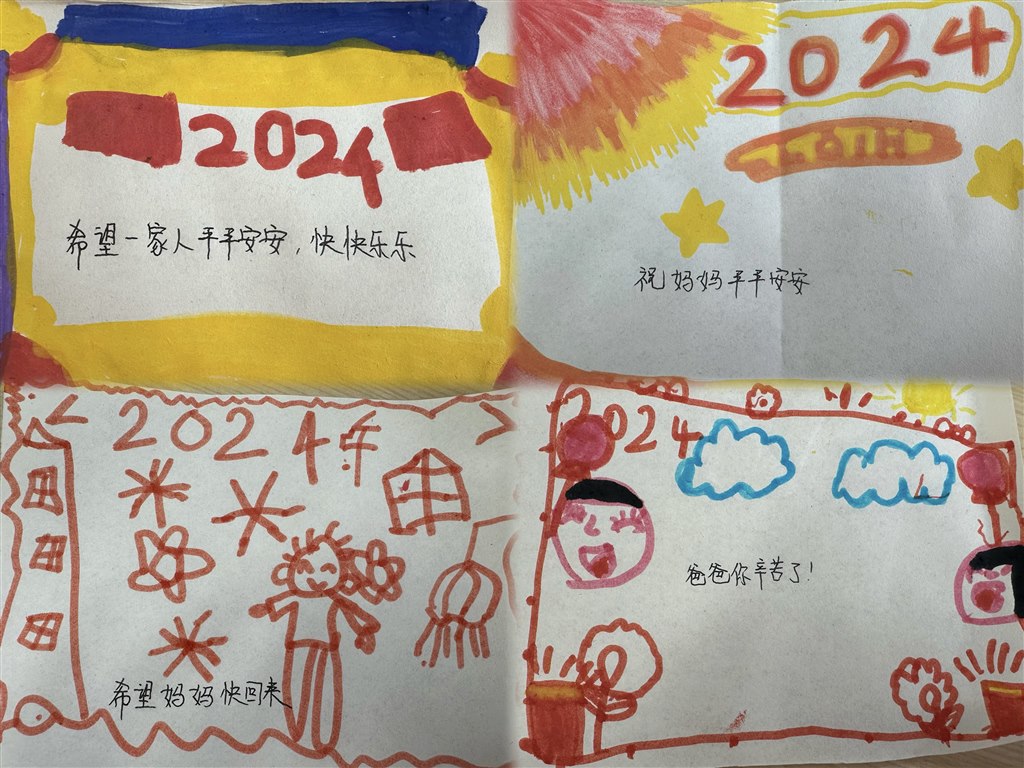 2024
希望一家人平平安安，快快乐乐
2024
祝妈妈平平安安
2024年
希望妈妈快回来
2024
爸爸你辛苦了！